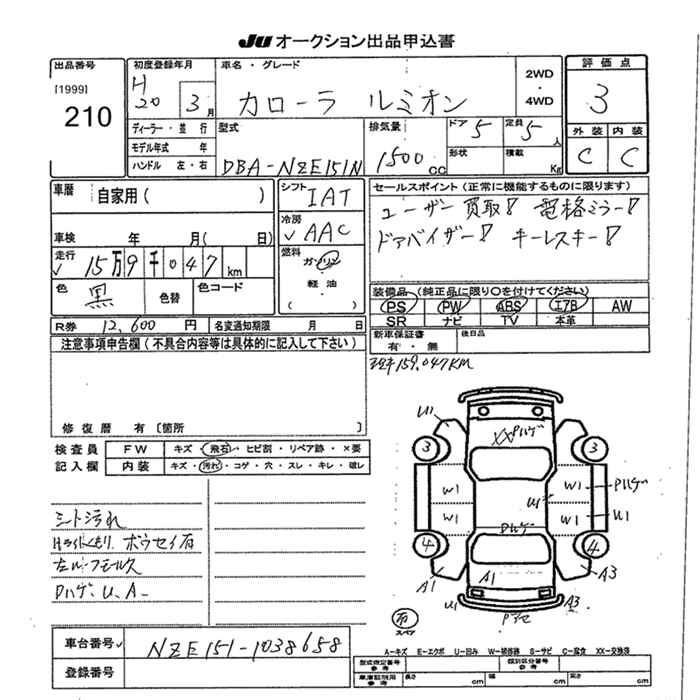 JU オークション出品申込書
出品番号
[1999]
210
初度登録年月
H 20 3月
車名・グレード
カローラ ルミオン
2WD
・
4WD
評価点
3
外装 内装
C C
ディーラー・並行
モデル年式 年
ハンドル 左・右
型式
DBA-NZE151N
排気量
1500 CC
ドア 5
定員 5人
形状
積載 Kg
車歴 自家用( )
車検 年 月( 日)
走行 15万9千047km
色 黒
色替
色コード
シフト IAT
冷房 AAC
燃料 ガソリン
軽油
( )
セールスポイント(正常に機能するものに限ります)
ユーザー買取! 電格ミラー!
ドアバイザー! キーレスキー!
装備品(純正品に限り○を付けてください)
PS PW ABS エアB AW
SR ナビ TV 本革
新車保証書
有・無
後日品
R券 12,600円 名変通知期限 月 日
注意事項申告欄(不具合内容等は具体的に記入して下さい)
修復歴 有〔箇所
159,047KM
検査員
記入欄
FW キズ・飛石・ヒビ割・リペア跡・×要
内装 キズ・汚れ・コゲ・穴・スレ・キレ・破レ
シート汚れ
Hライトくもり ボウセイ有
Pハゲ、U、A
U1
XX Pハゲ
3 3
W1 W1 Pハゲ
W1 U1 W1 U1
Pハゲ
4 4
A1 A1 A3
U1 A3
有
スペア
A-キズ E-エクボ U-凹み W-補修跡 S-サビ C-腐食 XX-交換済
車台番号 NZE151-1038658
登録番号
型式指定番号
参考
類別区分番号
参考
車庫証明用
参考
長さ cm 幅 cm 高さ cm